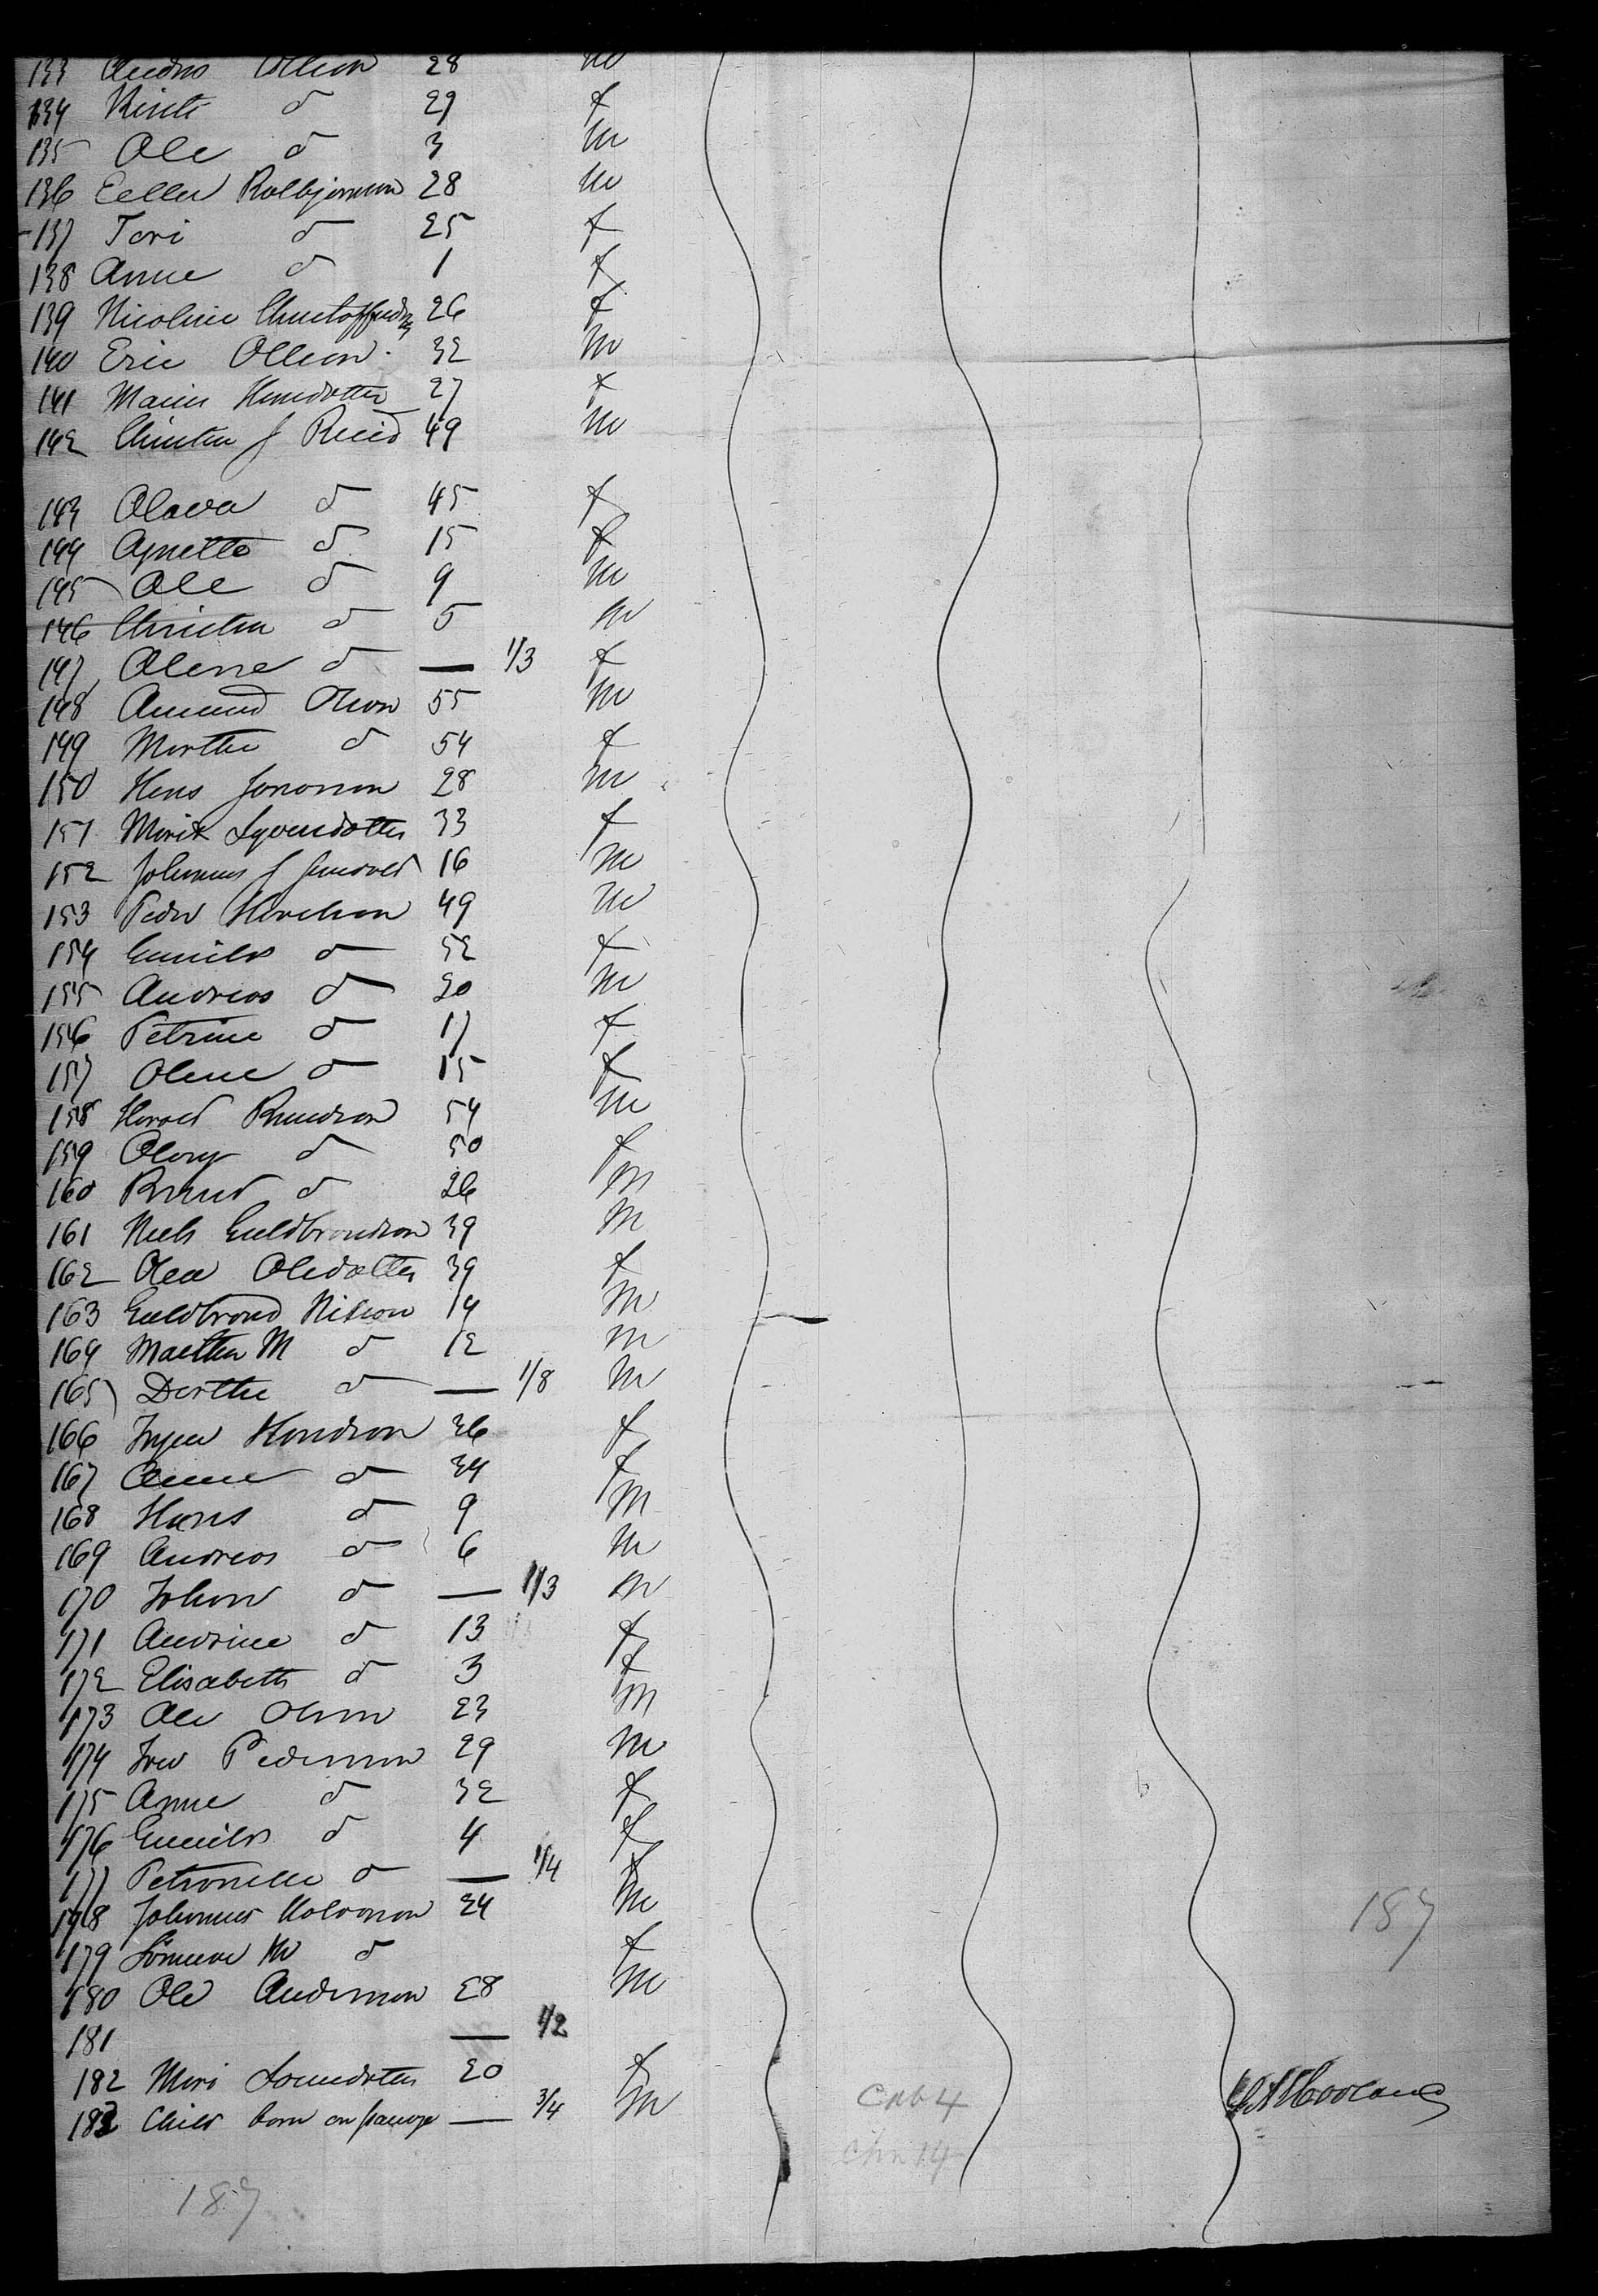 133 Andrus Ollson 28 m
134 Kirsti d 29 f
135 Ole d 3 m
136 Eeller Kolbjornson 28 m
137 Tori d 25 f
138 Anne d 1 f
139 Nicoline 26 f
140 Eric Ollson 32 m
141 Maria Hansdotter 27 f
142 Christen J 49 m
143 Olava d 45 f
144 Agnette d 15 f
145 Ole d 9 m
146 Christen d 5 m
147 Olene d — 1/3 f
148 Amund Olson 55 m
149 Marthe d 54 f
150 Hans Jonasson 28 m
151 Marit Syvendotter 33 f
152 Johannes J 16 m
153 Peder Harelson 49 m
154 Gunild d 52 f
155 Andreas d 20 m
156 Petrine d 17 f
157 Olene d 15 f
158 Harald Knudson 54 m
159 Olony d 50 f
160 Knud d 26 m
161 Niels Guldbrandson 39 m
162 Olea Oledatter 39 f
163 Guldbrand Nilson 14 m
164 Matthea M d 12 m
165 Dorthe d — 1/8 m
166 Inger Hansdson 36 f
167 Anne d 34 f
168 Hans d 9 m
169 Andreas d 6 m
170 Johan d — 1/3 m
171 Andrine d 13 f
172 Elisabeth d 3 f
173 Ole Olson 23 m
174 Iver Pederson 29 m
175 Anne d 32 f
176 Gunild d 4 f
177 Petronelle d — 1/4 f
178 Johannes Halvorson 24 m
179 M d f
180 Ole Anderson 28 m
181 — 1/2
182 Mari 20 f
183 Child born on passage — 3/4 m
187
187